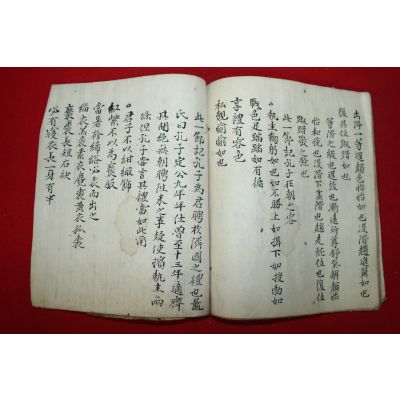 出降一等逞顔色怡怡如也沒階趨進翼如也
復其位踧踖如也
等階之級也逞放也漸遠所尊舒氣解顔怡
怡和悅也沒階下盡階也趨走就位也復位
踧踖敬之餘也
此一節記孔子在朝之容
執圭鞠躬如也如不勝上如揖下如授勃如
戰色足蹜蹜如有循
享禮有容色
私覿愉愉如也
此一節記孔子為君聘於隣國之禮也晁
氏曰孔子定公九年仕魯至十三年適齊
其間絶無朝聘往來之事疑使擯執圭兩
條但孔子嘗言其禮當如此爾
君子不以紺緅飾
紅紫不以為褻服
當暑袗絺綌必表而出之
緇衣羔裘素衣麑裘黄衣狐裘
褻裘長短右袂
必有寢衣長一身有半